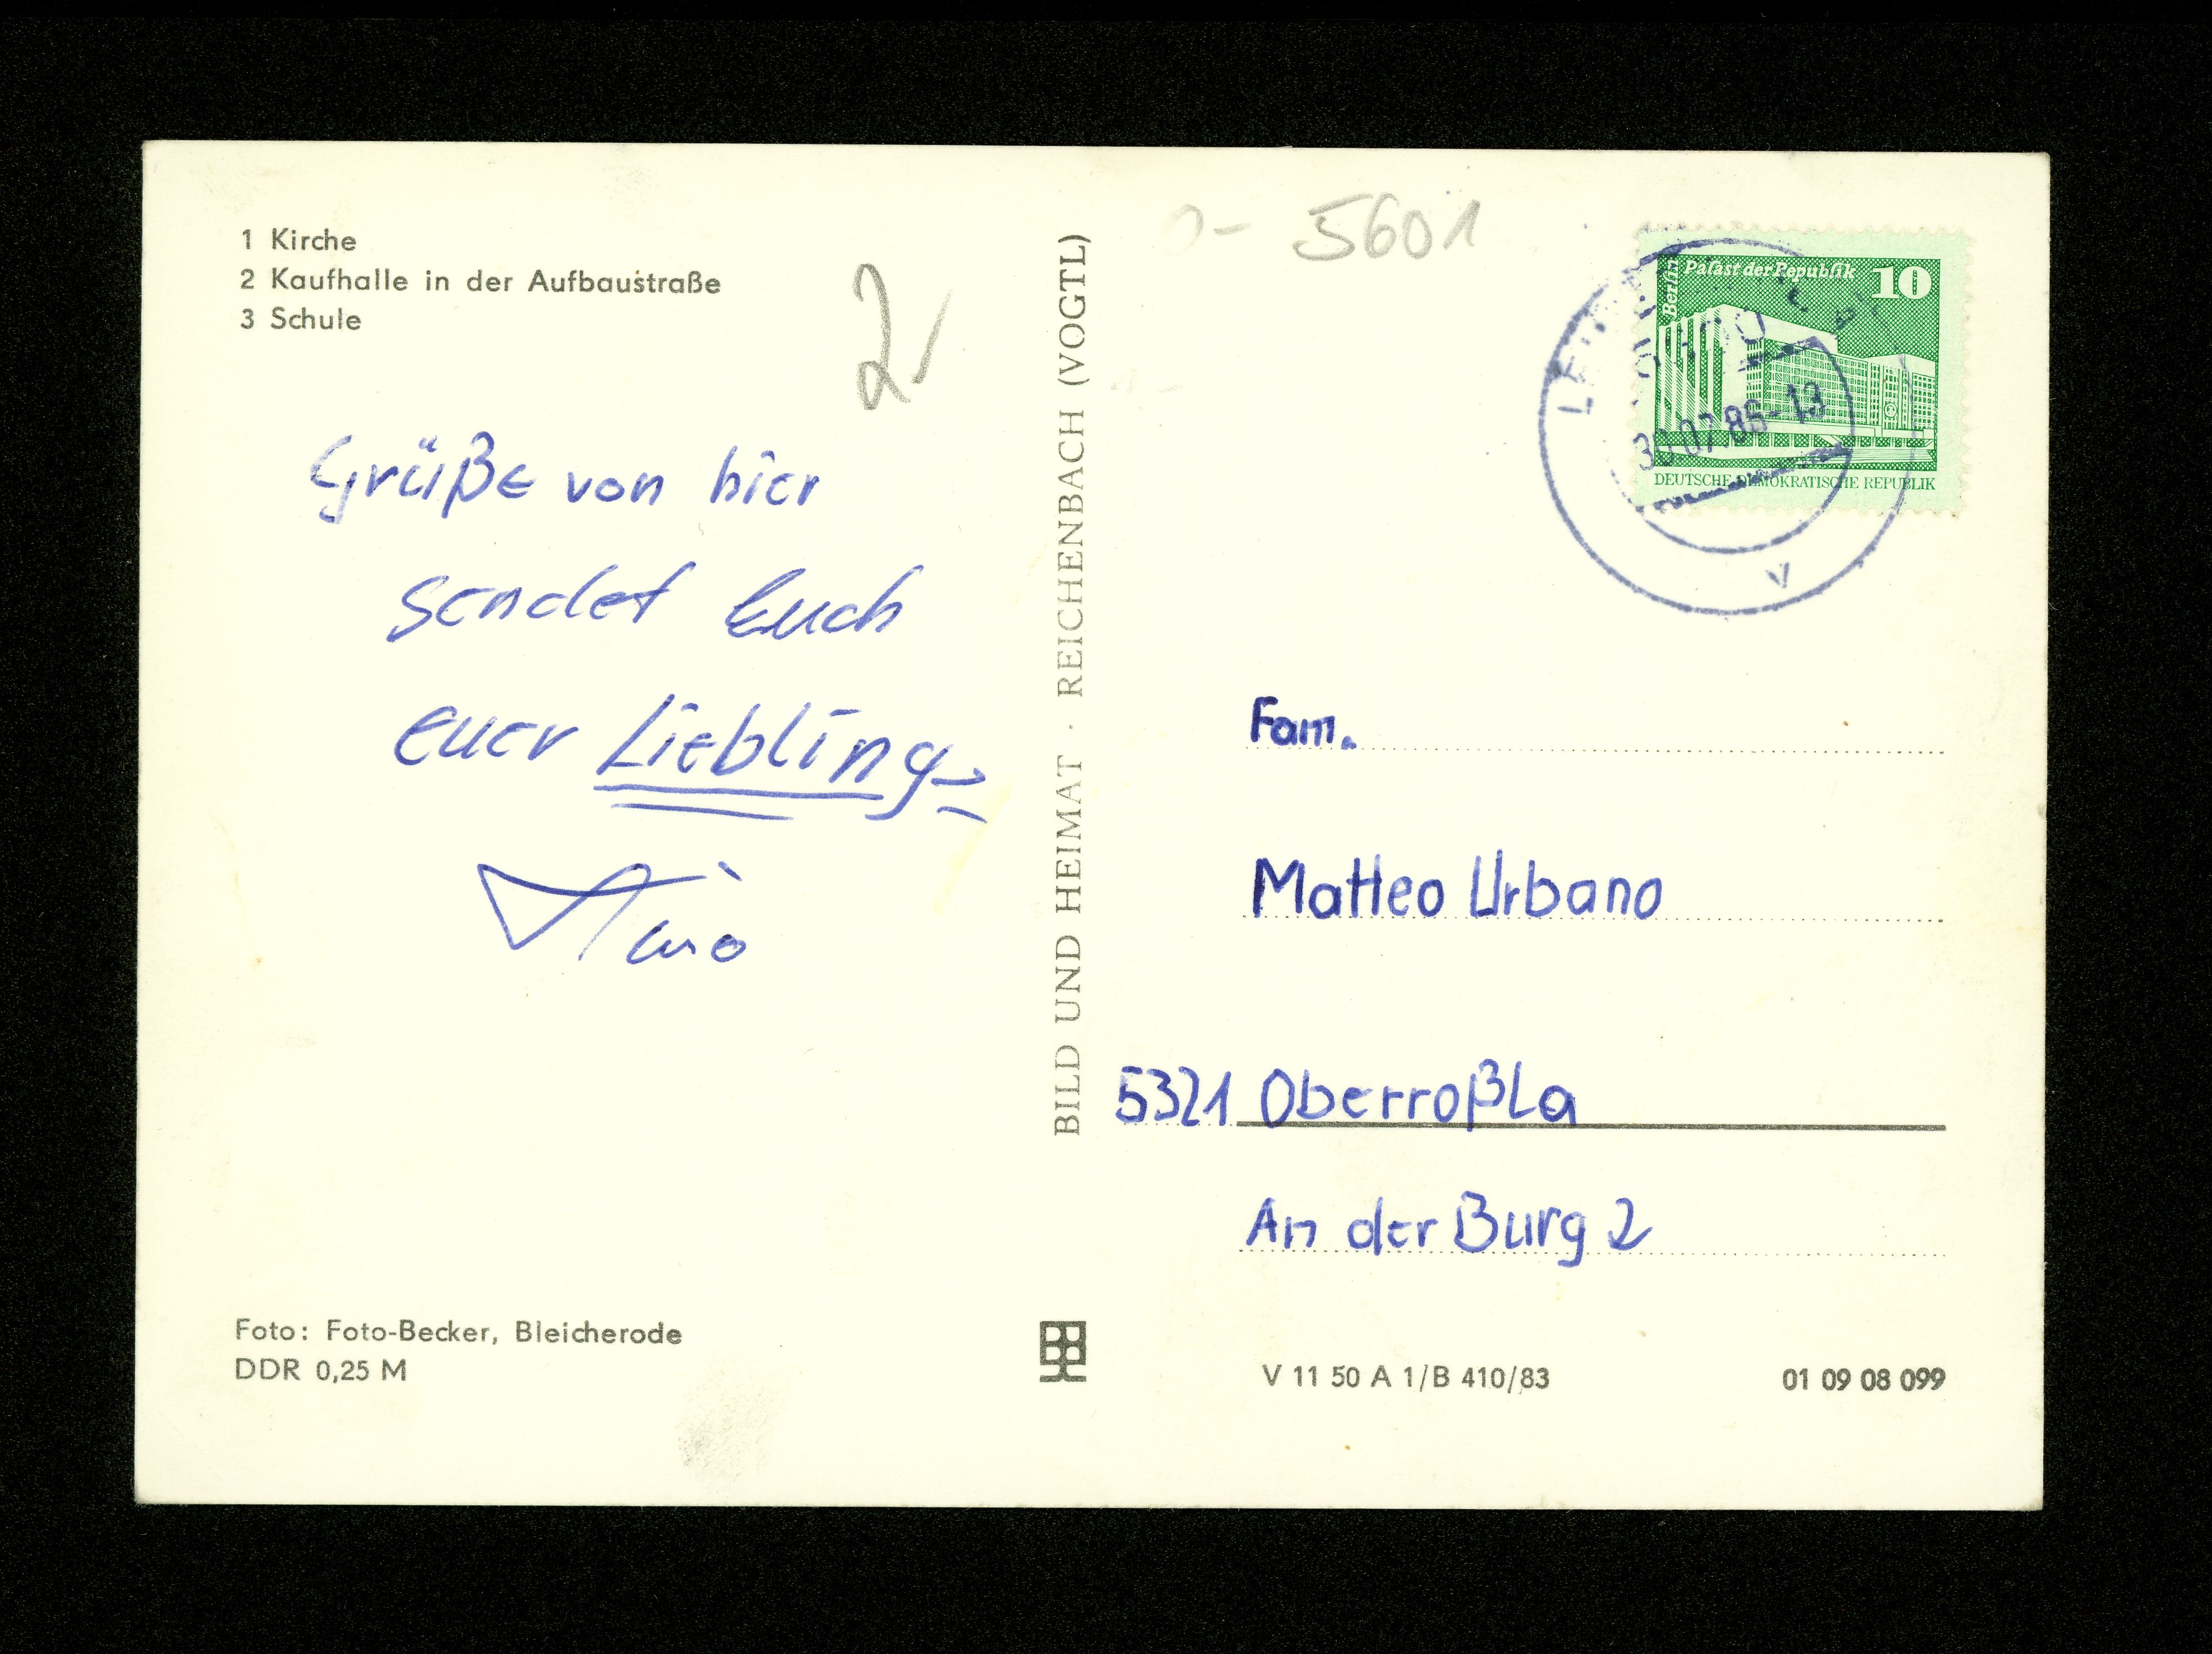 1 Kirche
2 Kaufhalle in der Aufbaustraße
3 Schule
2
Grüße von hier
sendet Euch
euer Liebling
Foto: Foto-Becker, Bleicherode
DDR 0,25 M
BILD UND HEIMAT · REICHENBACH (VOGTL)
0- 5601
Berlin
Palast der Republik 10
DEUTSCHE DEMOKRATISCHE REPUBLIK
30.07.86-13
v
Fam.
Matteo Urbano
5321 Oberroßla
An der Burg 2
V 11 50 A 1/B 410/83
01 09 08 099